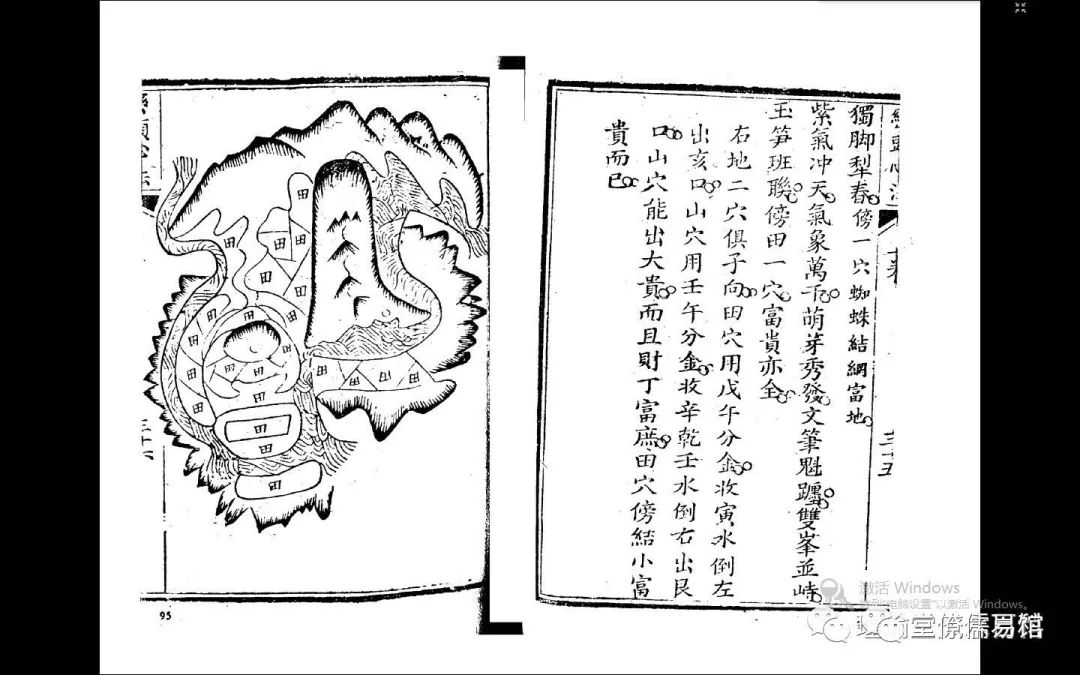 獨脚犁春傍一穴蜘蛛結網富地
紫氣冲天氣象萬千萌芽秀發文筆魁躔雙峯並峙
玉笋班聯傍田一穴富貴亦全
右地二穴俱子向田穴用戊午分金收寅水倒左
出亥口山穴用壬午分金收辛乾壬水倒右出艮
口山穴能出大貴而且財丁富庶田穴傍結小富
貴而已
三十五
田
田
田
田
田
田
田
田
田
田
田
田
田
田
田
田
田
田
田
田
田
95
激活 Windows
转到"电脑设置"以激活 Windows。